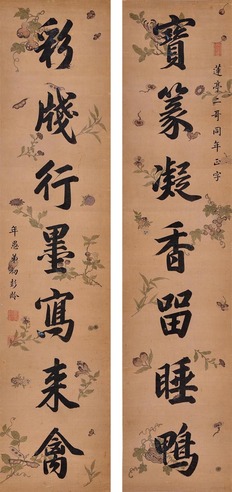 蓮亭二哥同年正字
寶篆凝香留睡鴨
彩牋行墨寫來禽
年愚弟彭齡